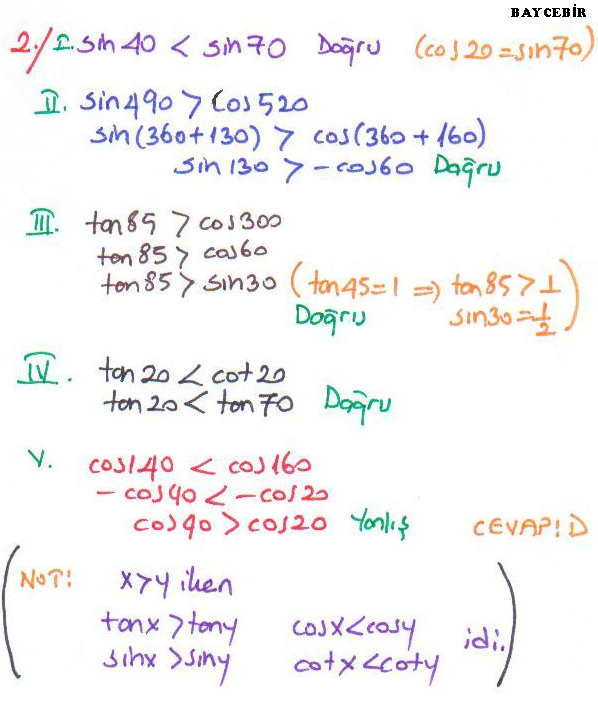 BAYCEBİR
2./ I. sin40 < sin70 Doğru (cos20=sin70)
II. sin490 > cos520
sin(360+130) > cos(360+160)
sin130 > -cos60 Doğru
III. tan85 > cos300
tan85 > cos60
tan85 > sin30 (tan45=1 => tan85>1
Doğru sin30=1/2)
IV. tan20 < cot20
tan20 < tan70 Doğru
V. cos140 < cos160
-cos40 < -cos20
cos40 > cos20 Yanlış CEVAP: D
(NOT: x>y iken
tanx > tany cosx<cosy idi.)
sinx > siny cotx<coty